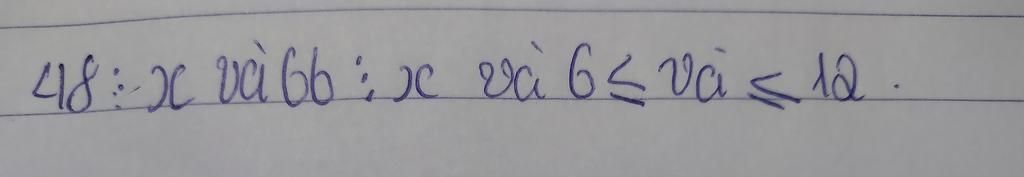 48 ⋮ x và 66 ⋮ x và 6 ≤ và ≤ 12.